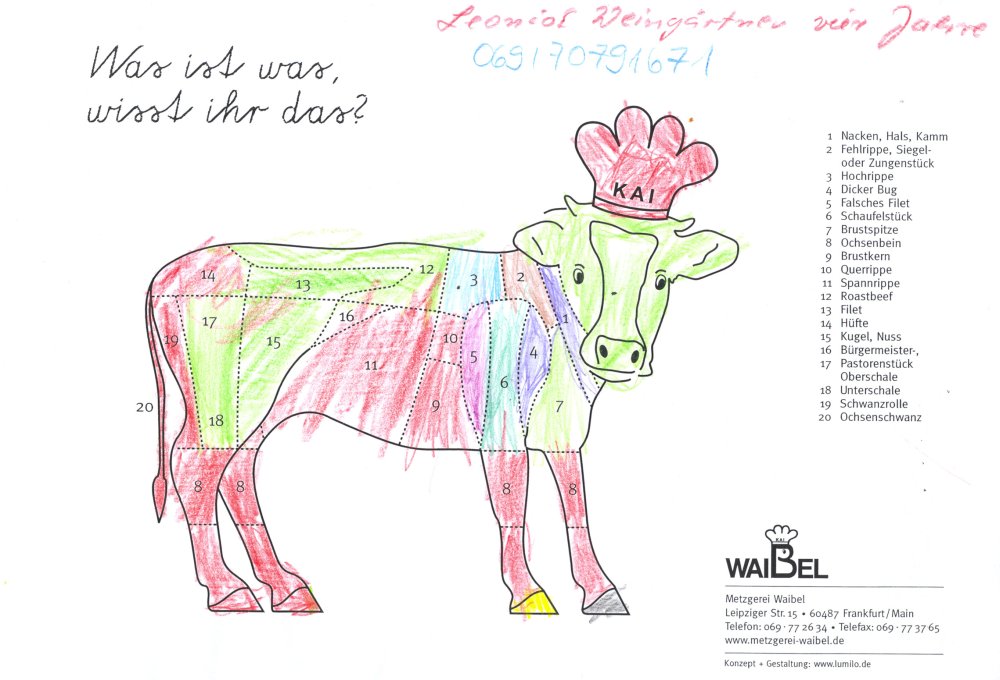 Leonid Weingärtner vier Jahre
069170791671
Was ist was,
wisst ihr das?
KAI
1 Nacken, Hals, Kamm
2 Fehlrippe, Siegel-
oder Zungenstück
3 Hochrippe
4 Dicker Bug
5 Falsches Filet
6 Schaufelstück
7 Brustspitze
8 Ochsenbein
9 Brustkern
10 Querrippe
11 Spannrippe
12 Roastbeef
13 Filet
14 Hüfte
15 Kugel, Nuss
16 Bürgermeister-,
17 Pastorenstück
Oberschale
18 Unterschale
19 Schwanzrolle
20 Ochsenschwanz
14
13
12
3
2
1
17
19
15
16
11
10
5
4
6
9
7
20
18
8
8
8
8
KAI
WAIBEL
Metzgerei Waibel
Leipziger Str. 15 • 60487 Frankfurt/Main
Telefon: 069 · 77 26 34 • Telefax: 069 · 77 37 65
www.metzgerei-waibel.de
Konzept + Gestaltung: www.lumilo.de